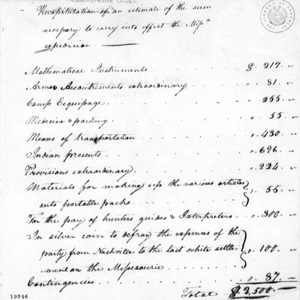 Recapitulation of an estimate of the sum
necessary to carry into effect the Misse
expedicion
Mathematical Instruments $. 217. —
Arms & Accoutrements extraordinary " . 81. —
Camp Ecquipage " . 255. —
Medecine & packing " . 55. —
Means of transportation " . 430. —
Indian presents " . 696. —
Provisions extraordinary " . 224. —
Materials for making up the various articles
into portable packs " . 55. —
For the pay of hunters guides & Interpreters " . 300. —
In silver coin to defray the expences of the
party from Nashville to the last white settle-
ment on the Missourie " . 100. —
Contingencies " . 87. —
Total $ 2,500. —
15946